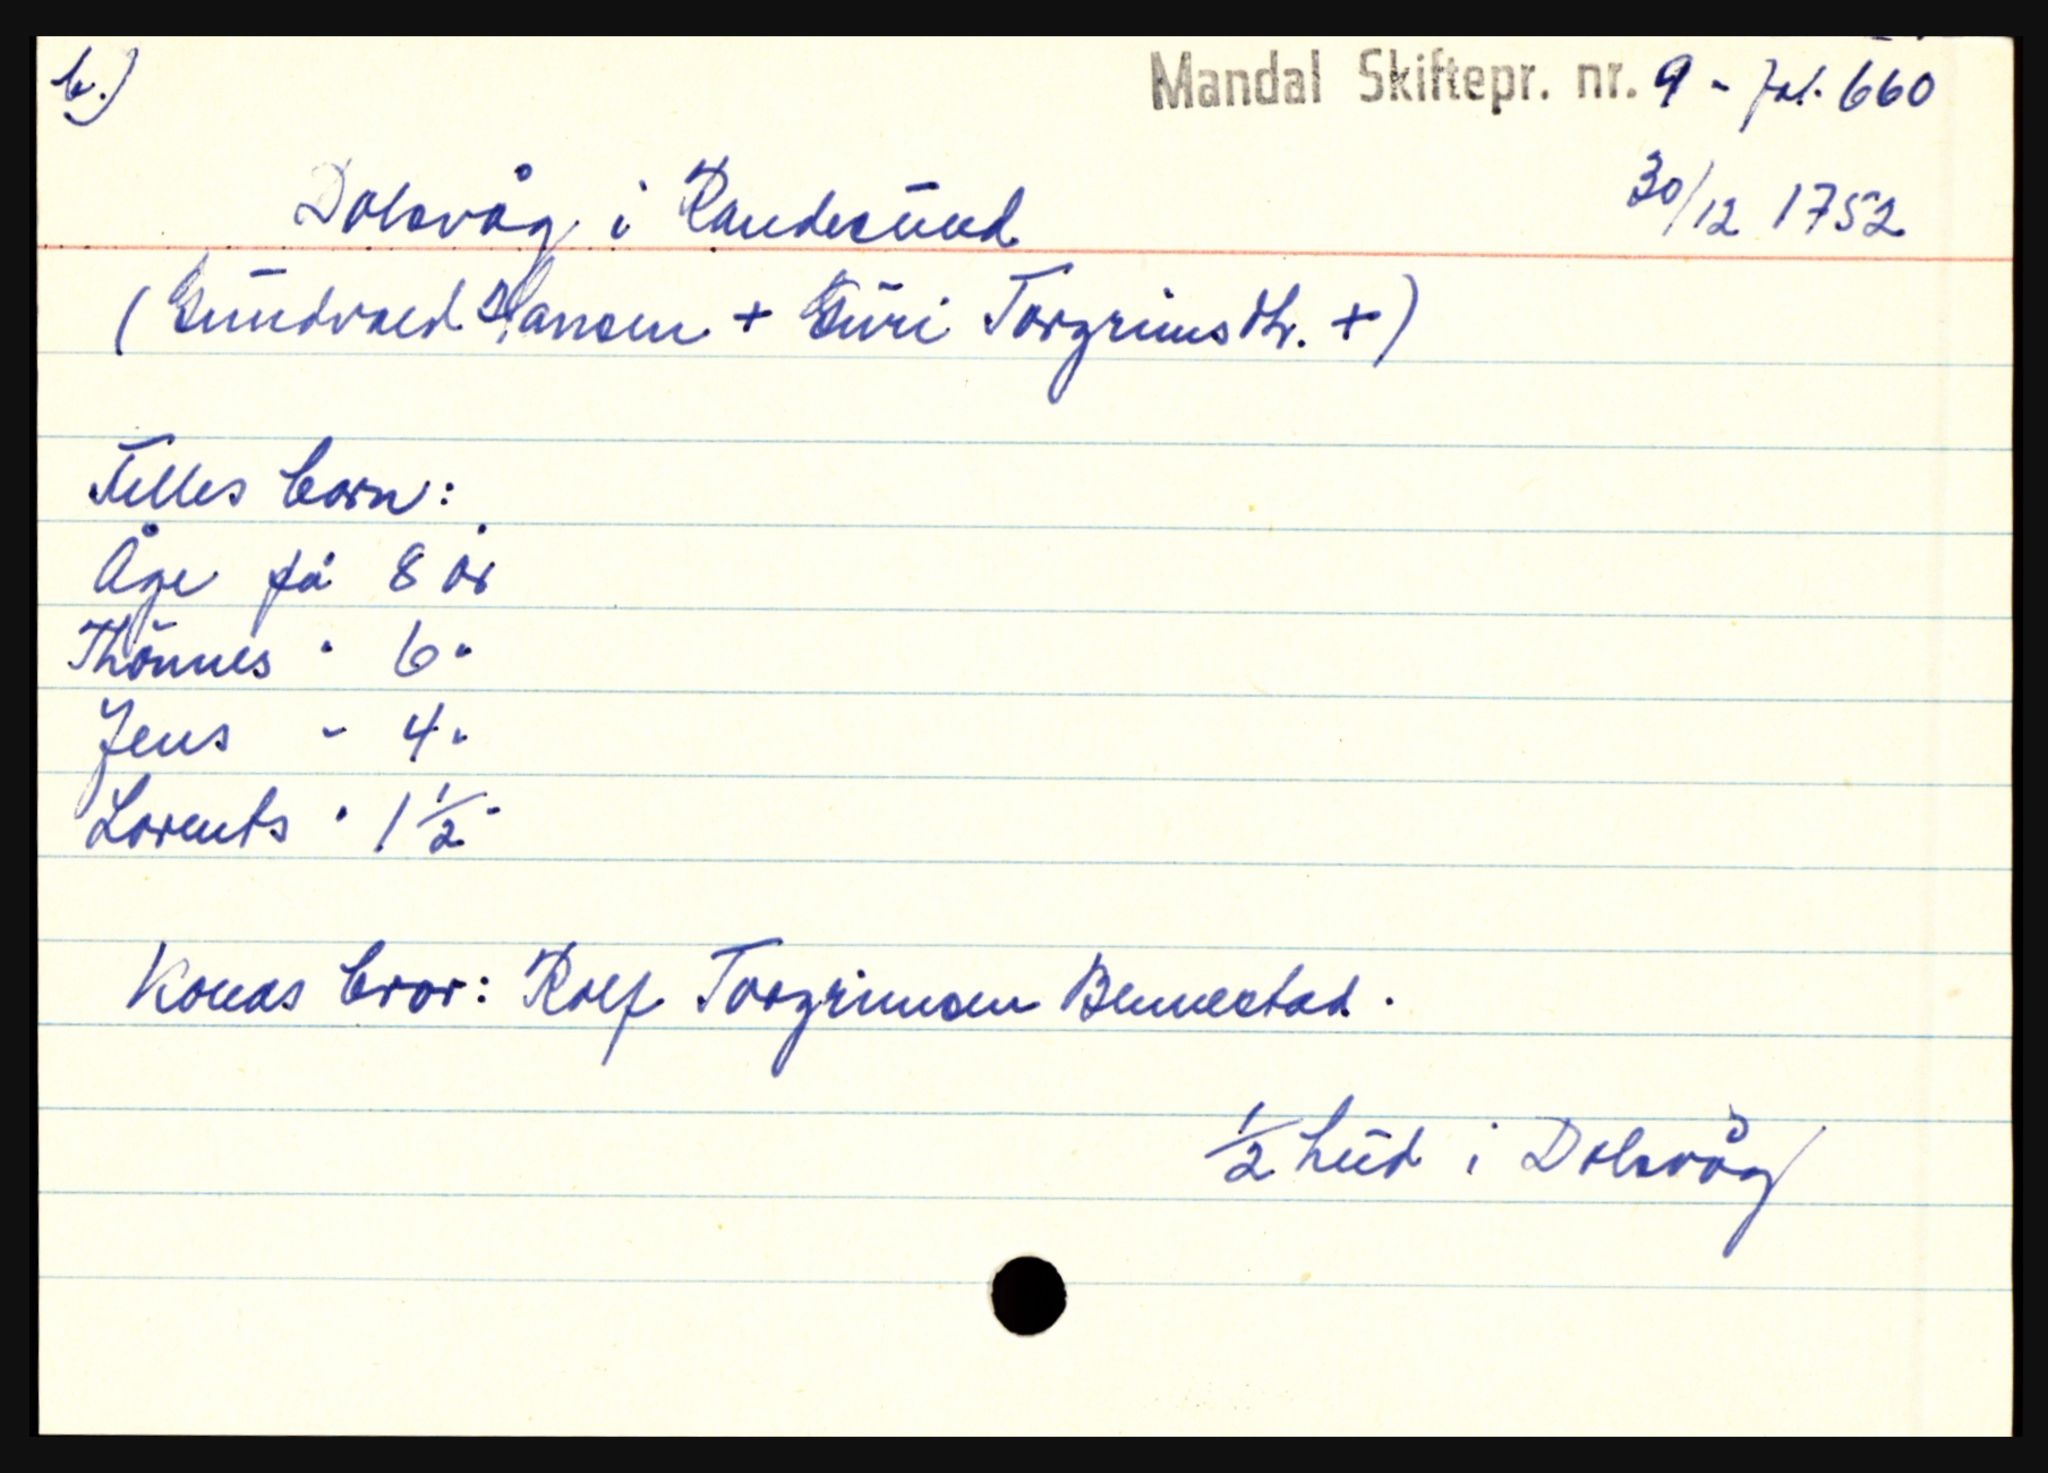 b.)
Mandal Skiftepr. nr. 9 - fol. 660
30/12 1752
Dolsvåg i Randesund
(Gundvald Hansen + Guri Torgrimsdtr. +)
Felles born:
Åge på 8 år
Thönnes " 6 "
Jens " 4 "
Lorents " 1 1/2 "
Konas bror: Rolf Torgrimsen Bennestad.
1/2 hud i Dolsvåg